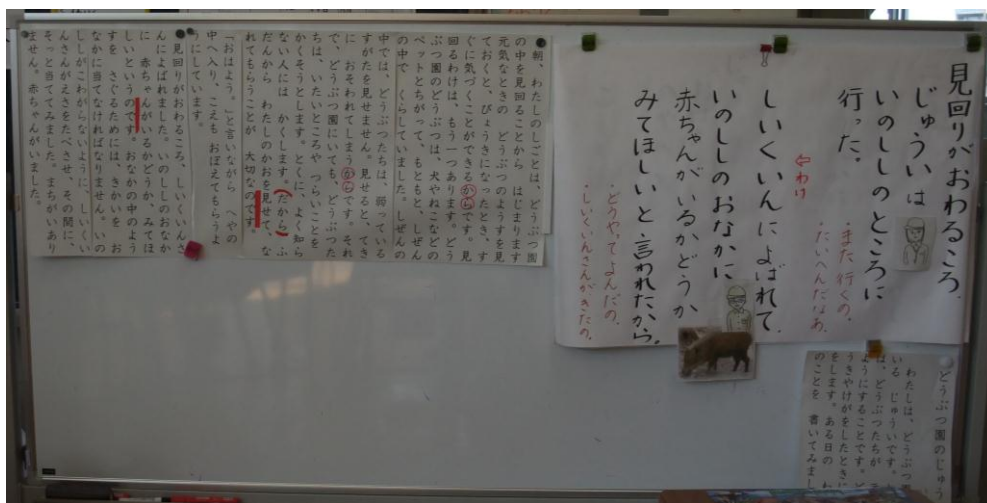 見回りがおわるころ、
じゅういは
いのししのところに
行った。
・また行くの。
・たいへんだなあ。
⇦わけ
しいくいんによばれて、
いのししのおなかに
赤ちゃんがいるかどうか
みてほしいと言われたから。
・どうやってよんだの。
・しいくいんさんがきたの。
どうぶつ園のじゅう
わたしは、どうぶつ
いる じゅういです。
は、どうぶつたちが
ようにすることです。ど
うきやけがをしたときに
をします。ある日の わ
のことを 書いてみまし
朝、わたしのしごとは、どうぶつ園
の中を見回ることから はじまります
元気なときの どうぶつのようすを見
ておくと、びょうきになったとき、す
ぐに気づくことができるからです。見
回るわけは、もう一つあります。どう
ぶつ園のどうぶつは、犬やねこなどの
ペットとちがって、もともと、しぜん
の中で くらしていました。しぜんの
中では、どうぶつたちは、弱っている
すがたを見せません。見せると、てき
に おそわれてしまうからです。それ
で、どうぶつ園にいても、どうぶつた
ちは、いたいところや つらいことを
かくそうとします。とくに、よく知ら
ない人には かくします。だから、ふ
だんから わたしのかおを見せて、な
れてもらうことが 大切なのです。
「おはよう。」と言いながら へやの
中へ入り、こえも おぼえてもらうよ
うにしています。
見回りがおわるころ、しいくいんさ
んによばれました。いのししのおなか
に 赤ちゃんがいるかどうか、みてほ
しいというのです。おなかの中のよう
すを さぐるためには、きかいを お
なかに当てなければなりません。いの
ししがこわがらないように、しいくい
んさんがえさをたべさせ、その間に、
そっと当ててみました。まちがいあり
ません。赤ちゃんがいました。